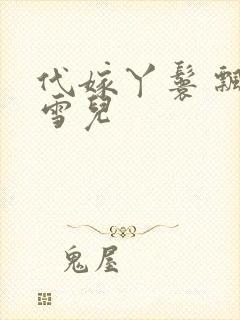 代嫁丫鬟 飄
雪兒
鬼屋